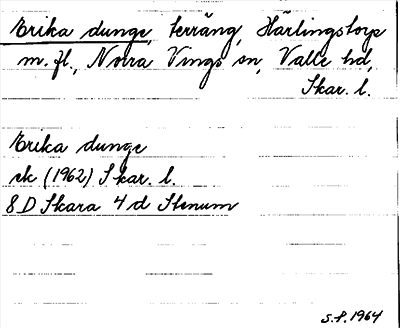 Erika dunge, terräng, Härlingstorp
m. fl., Norra Vings sn, Valle hd,
Skar. l.
Erika dunge
ek (1962) Skar. l.
8D Skara 4d Stenum
S.P. 1964